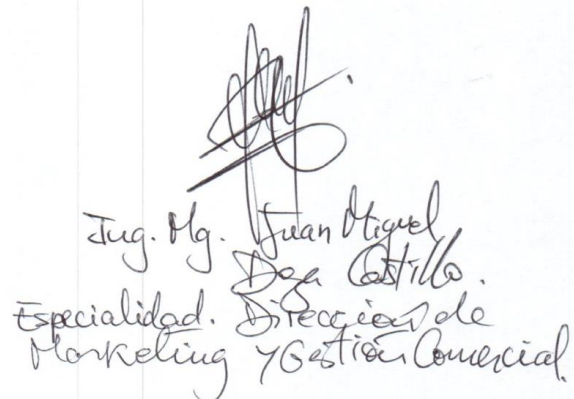 Ing. Mg. Juan Miguel
Castillo.
Especialidad. Dirección de
Marketing y Gestión Comercial.